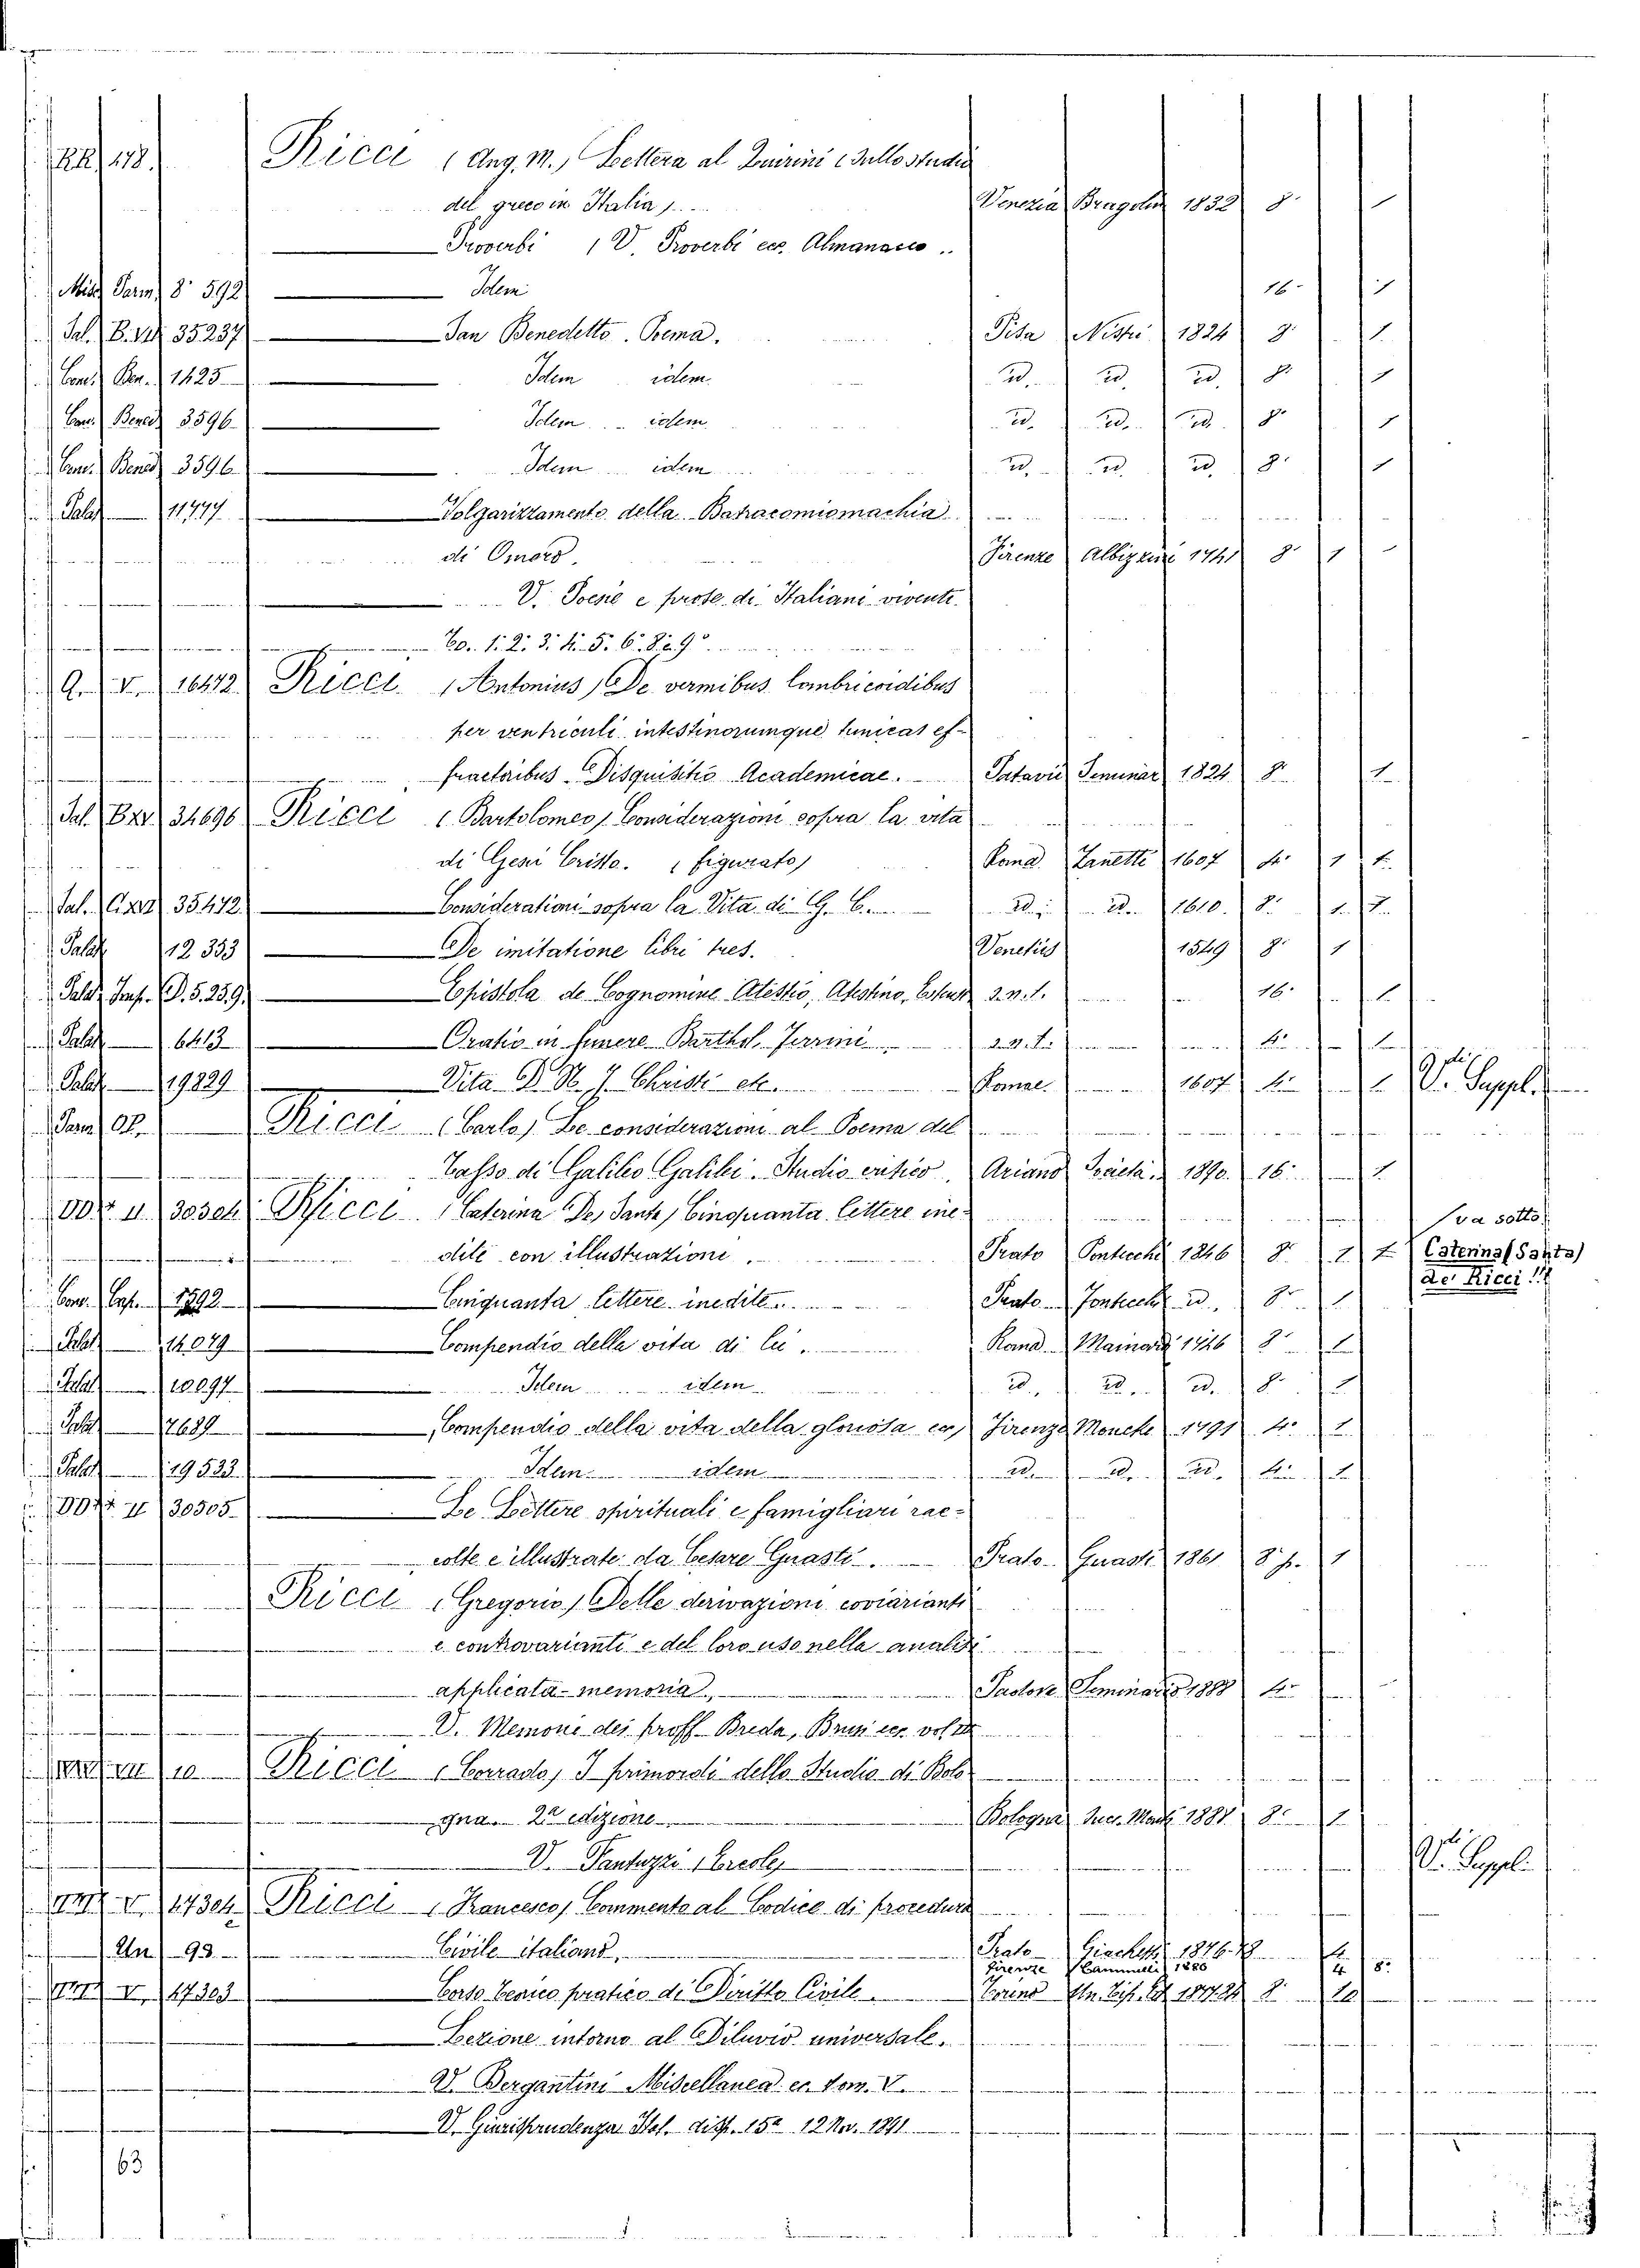 RR 178. Ricci (Ang. M.) Lettera al Quirini (Sullo studio
del greco in Italia). Venezia Bragolin 1832 8° 1
Proverbi (V. Proverbi ecc. Almanacco.
Misc Parm 8° 592 Idem 16° 1
Sal. B. VII 35237 San Benedetto. Poema. Pisa Nistri 1824 8° 1
Con. Ben. 1425 Idem idem id. id. id. 8° 1
Con. Bened 3596 Idem idem id. id. id. 8° 1
Con. Bened 3596 Idem idem id. id. id. 8° 1
Palat 11777 Volgarizzamento della Batracomiomachia
di Omero. Firenze Albizzini 1741 8° 1
V. Poesie e prose di Italiani viventi.
To. 1. 2. 3. 4. 5. 6. 8. e 9°
A. V. 16472 Ricci (Antonius) De vermibus lombricoidibus
per ventriculi intestinorumque tunicas ef-
fractoribus. Disquisitio Academicae. Patavii Seminar 1824 8° 1
Sal. 34696 Ricci (Bartolomeo) Considerazioni sopra la vita
di Gesù Cristo. (figurato) Roma Zanetti 1607 4° 1 1
Sal. 35472 Considerationi sopra la Vita di G. C. id. id. 1610. 8° 1
Palat 12353 De imitatione libri tres. Venetiis 1549 8° 1
Palat Imp. D. 5. 259. Epistola de Cognomine Atestio, Atestino, Estens s. n. t. 16° 1
Palat 6413 Oratio in funere Barthol. Ferrini s. n. t. 4° 1
Palat 19829 Vita D. N. J. Christi etc. Romae 1607 4° 1 V. Suppl.
Parm Op. Ricci (Carlo) Le considerazioni al Poema del
Tasso di Galileo Galilei. Studio critico. Ariano Società 1890. 16° 1
II 30304 Ricci (Caterina De, Santa) Cinquanta lettere ine-
dite con illustrazioni. Prato Pontecchi 1846 8° 1
(va sotto
Caterina (Santa)
de' Ricci!!)
Conv. Cap. 1892 Cinquanta lettere inedite. Prato Pontecchi id. 8° 1
Palat 14079 Compendio della vita di lei. Roma Mainardi 1746 8° 1
Palat 10097 Idem idem id. id. id. 8° 1
Palat 7689 Compendio della vita della gloriosa ecc. Firenze Moucke 1491 4° 1
Palat 19533 Idem idem id. id. id. 4° 1
II 30305 Le Lettere spirituali e famigliari rac-
colte e illustrate da Cesare Guasti. Prato Guasti 1861 8° p. 1
Ricci (Gregorio) Delle derivazioni coviarianti
e controvarianti e del loro uso nella analisi
applicata - memoria. Padova Seminario 1888 4°
V. Memorie dei proff. Breda, Brusi ecc. vol
VII 10 Ricci (Corrado) I primordi dello Studio di Bolo
gna. 2ª edizione Bologna Succ. Monti 1888 8° 1
V. Pantuzzi (Ercole) V. Suppl.
V. 17304 Ricci (Francesco) Commento al Codice di procedura
Un 93 Civile italiano. Prato Giachetti 1876-78
Firenze Cammelli 1880 4 8°
V. 17303 Corso teorico pratico di Diritto Civile. Torino Un. Tip. Ed 1877.84 8° 10
Lezione intorno al Diluvio universale.
V. Bergantini Miscellanea ec. tom. V.
V. Giurisprudenza Ital. disp. 15ª 12 Nov. 1891
63